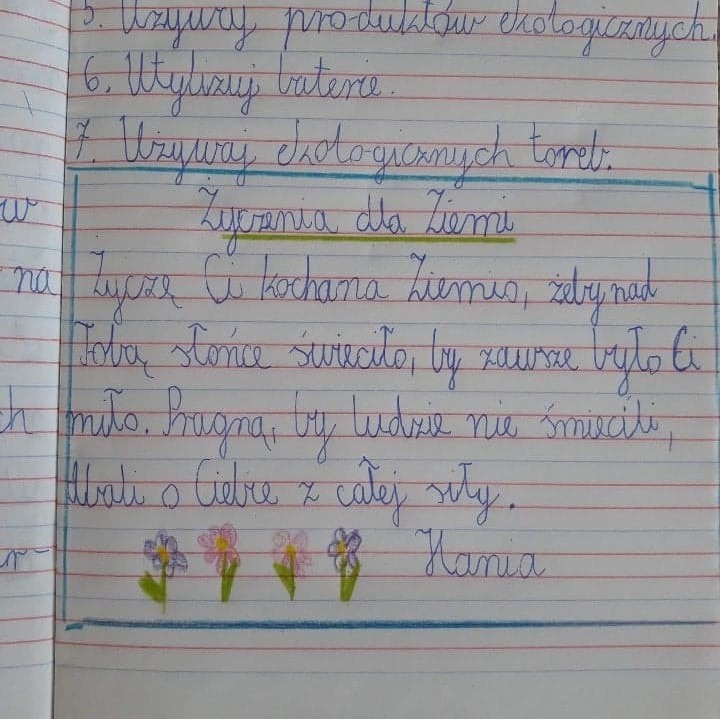 5. Używaj produktów ekologicznych.
6. Utylizuj baterie.
7. Używaj ekologicznych toreb.
w
Życzenia dla Ziemi
na
Życzę Ci kochana Ziemio, żeby nad
Tobą słońce świeciło, by zawsze było Ci
ch
miło. Pragnę, by ludzie nie śmiecili,
dbali o Ciebie z całej siły.
r-
Hania